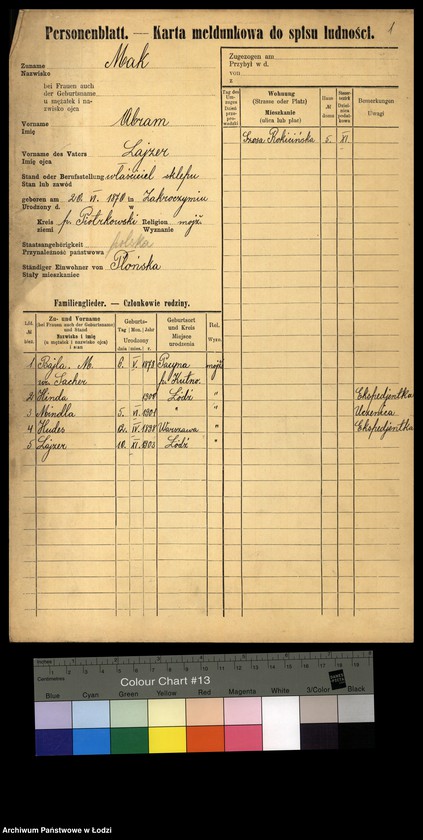 1
Personenblatt. — Karta meldunkowa do spisu ludności.
Zuname
Nazwisko
Mak
bei Frauen auch
der Geburtsname
u mężatek i na-
zwisko ojca
Vorname
Imię
Abram
Vorname des Vaters
Imię ojca
Lajzer
Stand oder Berufsstellung
Stan lub zawód
właściciel sklepu
geboren am 20. VI. 1870 in Zakroczymiu
Urodzony d. w
Kreis p. Piotrkowski Religion mojż
ziemi Wyznanie
Staatsangehörigkeit
Przynależność państwowa
polska
Ständiger Einwohner von
Stały mieszkaniec
Płońska
Zugezogen am
Przybył w d.
von
z
Tag des
Um-
zuges
Dzień
prze-
prowadzki
Wohnung
(Strasse oder Platz)
Mieszkanie
(ulica lub plac)
Haus
№
domu
Bemerkungen
Uwagi
Szosa Rokicińska 5. XI
Familienglieder. — Członkowie rodziny.
Lfd.
№
bież.
Zu- und Vorname
(bei Frauen auch der Geburtsname)
und Stand
Nazwisko i imię
(u mężatek i nazwisko ojca)
i stan
Geburts-
Tag Mon. Jahr
Urodzony
dnia mies. r.
Geburtsort
und Kreis
Miejsce
urodzenia
Rel.
Wyzn.
1 Bajla. M. 6. V. 1878 mojż
p. Kutno.
2 Hinda 1900 Łódź " Ekspedjentka
3 Mindla 5. VI 1901 " " Uczenica
4 Hudes IV. 1898 Warszawa " Ekspedjentka
5 Lajzer 10. XI. 1903 Łódź "
Inches
Centimetres
Colour Chart #13
Blue Cyan Green Yellow Red Magenta White 3/Color Black
Archiwum Państwowe w Łodzi
Archiwum Państwowe w Łodzi